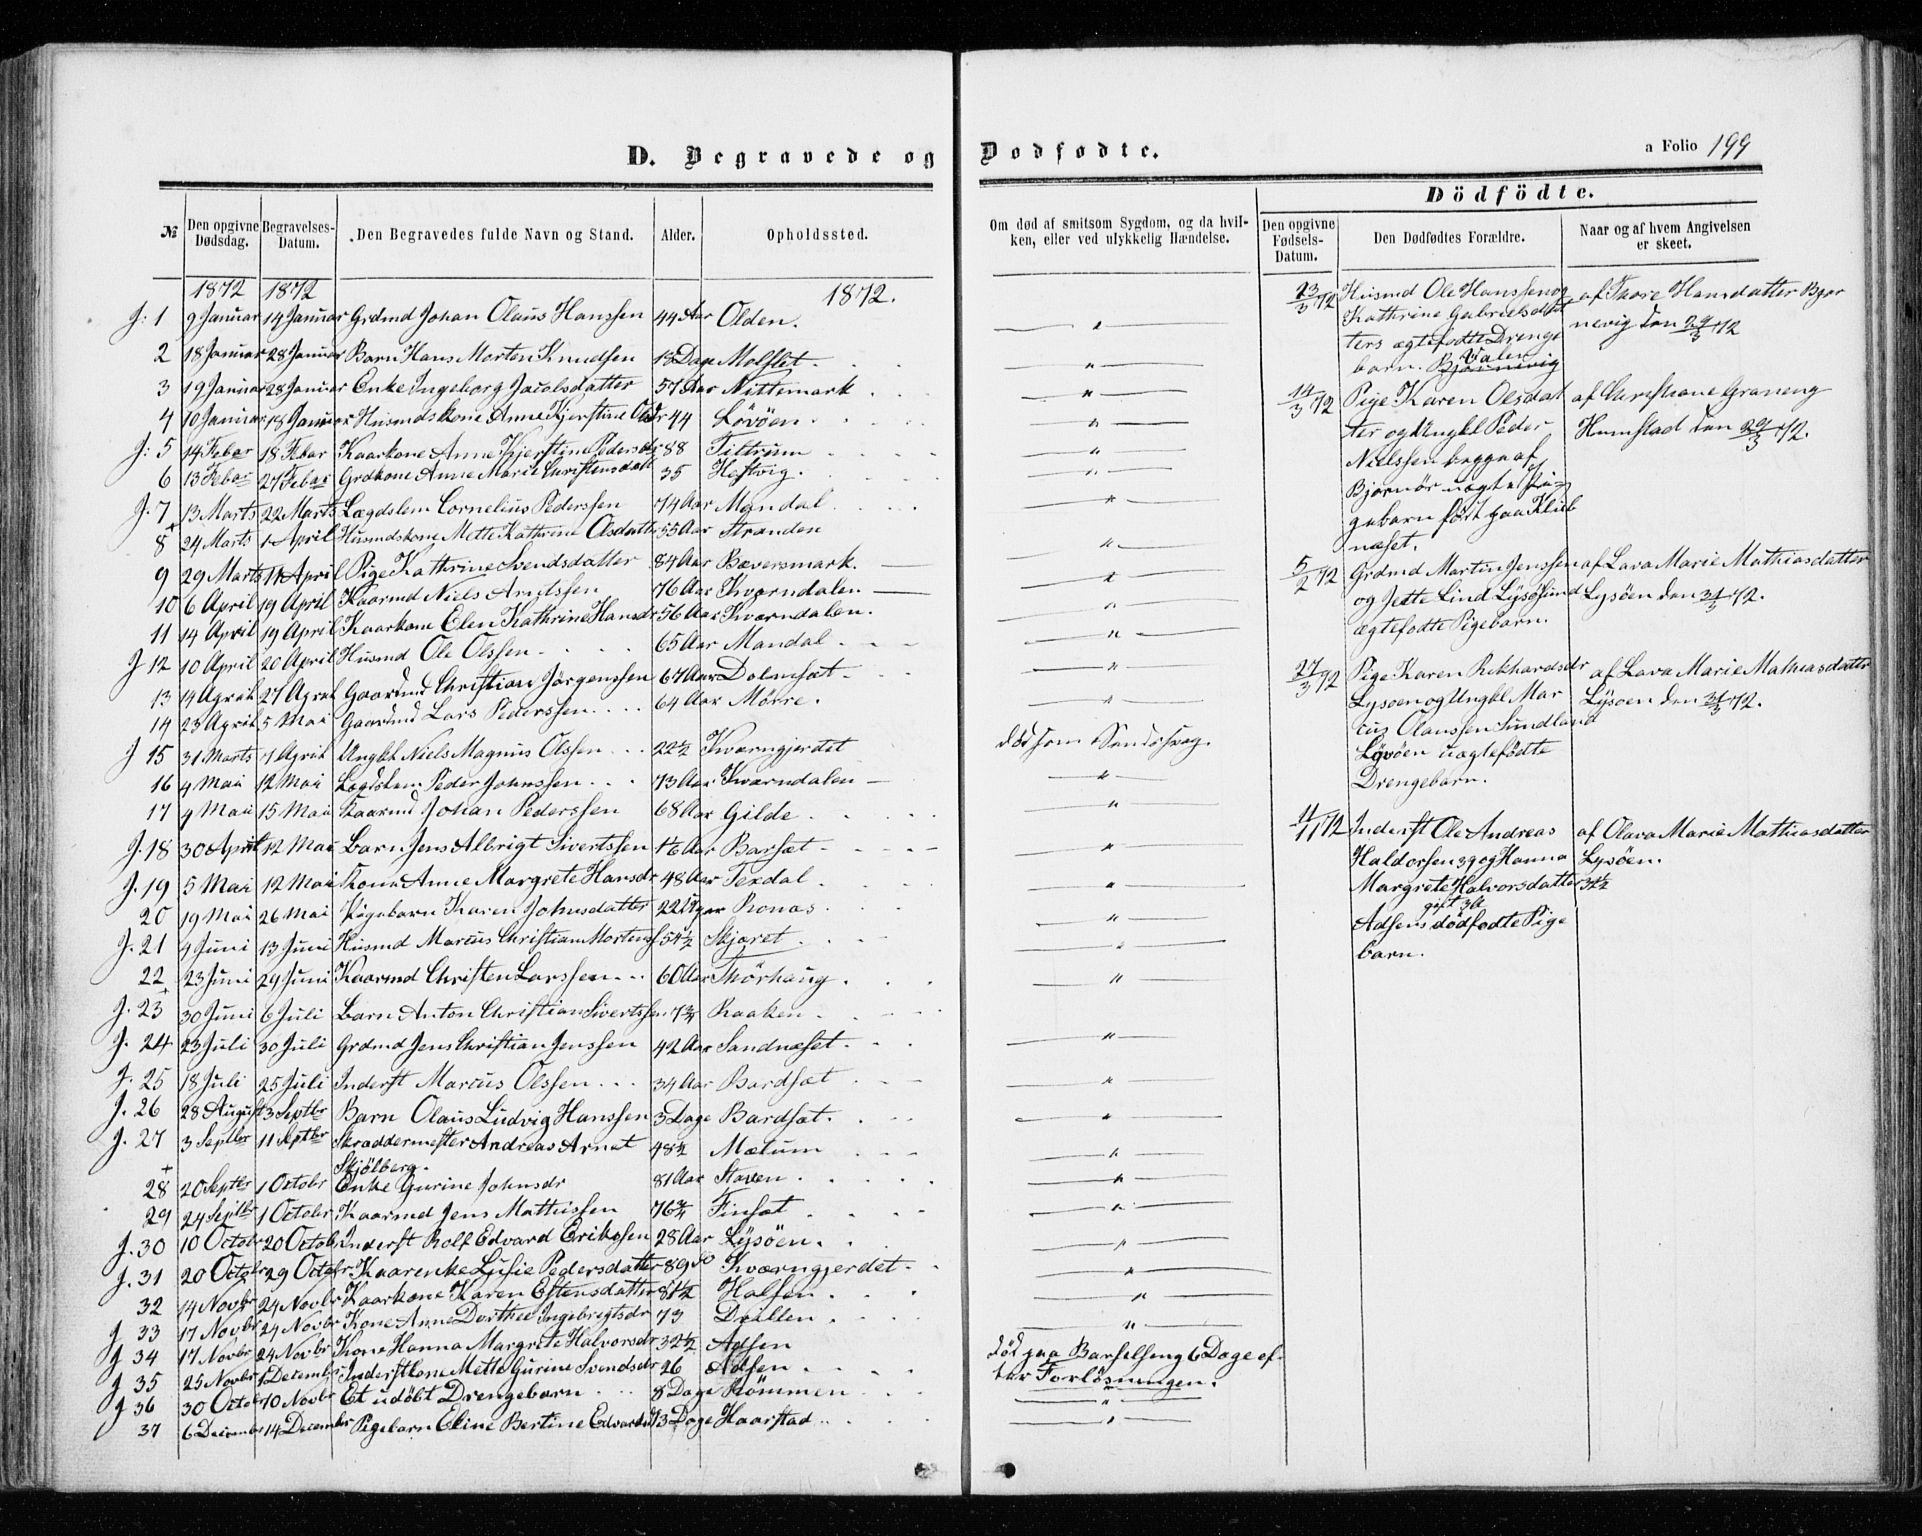 D. Begravede og Dødfødte.
a Folio 199
Dödfödte.
№ Den opgivne Dødsdag. Begravelses-Datum. Den Begravedes fulde Navn og Stand. Alder. Opholdssted.
Om død af smitsom Sygdom, og da hvilken, eller ved ulykkelig Hændelse.
Den opgivne Fødsels-Datum. Den Dødfødtes Forældre. Naar og af hvem Angivelsen er skeet.
1872 1872 1872.
J: 1 9 Januar 14 Januar Grdmd Johan Olaus Hanssen 44 Aar Olden.
2 18 Januar 28 Januar Barn Hans Morten Knudsen 18 Dage Molslet
3 19 Januar 28 Januar Enke Ingeborg Jacobsdatter 57 Aar Nittemark
4 10 Januar 18 Januar Husmdskone Anne Kjerstine 44 Lövöen
J: 5 14 Febar 18 Febar Kaarkone Anne Kjerstine 88 Tiltrum
6 13 Febar 27 Febar Grdkone Anne Marie Christensdatt 35 Heftvig.
J. 7 13 Marts 22 Marts Lægdslem Cornelius Pederssen 74 Aar Mandal
8 24 Marts 1 April Husmdskone Mette Kathrine Olsdatter 55 Aar Stranden
9 29 Marts 14 April Pige Kathrine Svendsdatter 84 Aar Bæversmark.
10 6 April 19 April Kaarmd Niels Arntssen 76 Aar Kværndalen
11 14 April 19 April Kaarkone Elen Kathrine Hansdr 56 Aar Kværndalen.
J 12 10 April 20 April Husmd Ole Olssen 65 Aar Mandal
13 14 April 27 April Gaardmd Christian Jörgenssen 67 Aar Dolmsæt
14 23 April 5 Mai Gaardmd Lars Pederssen 64 Aar Mörre.
J 15 31 Marts 7 April Ungkl Niels Magnus Olssen 22½ Kværngjerdet död som
16 4 Mai 12 Mai Lægdslem Peder Johnssen 73 Aar Kværndalen
17 9 Mai 15 Mai Kaarmd Johan Pederssen 68 Aar Gilde
J. 18 30 April 12 Mai Barn Jens Albrigt Sivertssen Aar Barsæt
J. 19 5 Mai 12 Mai Kone Anne Margrete Hansdr 48 Aar Texdal
20 19 Mai 26 Mai Pigebarn Karen Johnsdatter 22 Uger Ronas
J. 21 4 Juni 13 Juni Husmd Marcus Christian Mortenss 54½ Skjæret
22 23 Juni 29 Juni Kaarmd Christen Larssen 60 Aar Störhaug
J. 23 30 Juni 6 Juli Barn Anton Christian Sivertssen Raaken
J. 24 23 Juli 30 Juli Grdmd Jens Christian Jenssen 42 Aar Sandnæset
J. 25 18 Juli 25 Juli Inderst Marcus Olssen 34 Aar Bardsæt
J. 26 28 August 3 Septbr Barn Olaus Ludvig Hanssen 3 Dage Bardsæt
J. 27 3 Septbr 11 Septbr Skraddermester Andreas Arnet Skjölberg. 48½ Mælum
28 20 Septbr 1 Octobr Enke Gurine Johnsdr 81 Aar Staven
29 24 Septbr 1 Octobr Kaarmd Jens Mathissen 76¾ Finsæt
J. 30 10 Octobr 20 Octobr Inderst Rolf Edvard Erikssen 28 Aar Lysöen.
J. 31 20 Octobr 29 Octobr Kaarenke Lusie Pedersdatter 89 Kværngjerdet
32 14 Novbr 24 Novbr Kaarkone Karen Estensdatter 81½ Halsen
J 33 17 Novbr 24 Novbr Kone Anne Dorthea Ingebrigtsdr 73 Dvallen
J 34 17 Novbr 24 Novbr Kone Hanna Margrete Halvorsdr 32½ Adsen död paa Barselseng 6 Dage efter Forlösningen.
J 35 25 Novbr 1 Decembr Inderstkone Mette Gurine Svendsdr 26 Adsen
J 36 30 Octobr 10 Novbr Et udöbt Drengebarn 8 Dage Römmen
37 6 Decembr 14 Decembr Pigebarn Eline Bertine 13 Dage Haarstad
23/3 72 Husmd Ole Hanssen og
Kathrine Gabrielsdat
ters ægtefödte Drenge
barn. Valen Bjørnevig
af Thore Hansdatter Bjør
nevig den 29/3 72
14/3 72 Pige Karen Olsdat
ter og Ungkl Peder
Nielssen begge af
Bjørnör uægte Pi-
gebarn født paa Klieb
næset.
af Christiane Graneng
Humstad den 29/3 72.
5/2 72 Grdmd Martin Jenssen
og Jette Lind Lysösund
ægtefödte Pigebarn.
af Lava Marie Mathiasdatter
Lysöen den 31/3 72.
27/3 72 Pige Karen Rikhardsdr
Lysoen og Ungkl Mar
cus Olaussen Sundland
Lysöen uægtefödte
Drengebarn.
af Lava Marie Mathiasdatter
Lysoen den 31/3 72.
11/11 72 Inderst Ole Andreas
Haldorsen 39 og Hanna
Margrete Halvorsdatter 32½
gift
Adsens dödfødte Pige
barn.
af Olava Marie Mathiasdatter
Lysöen.